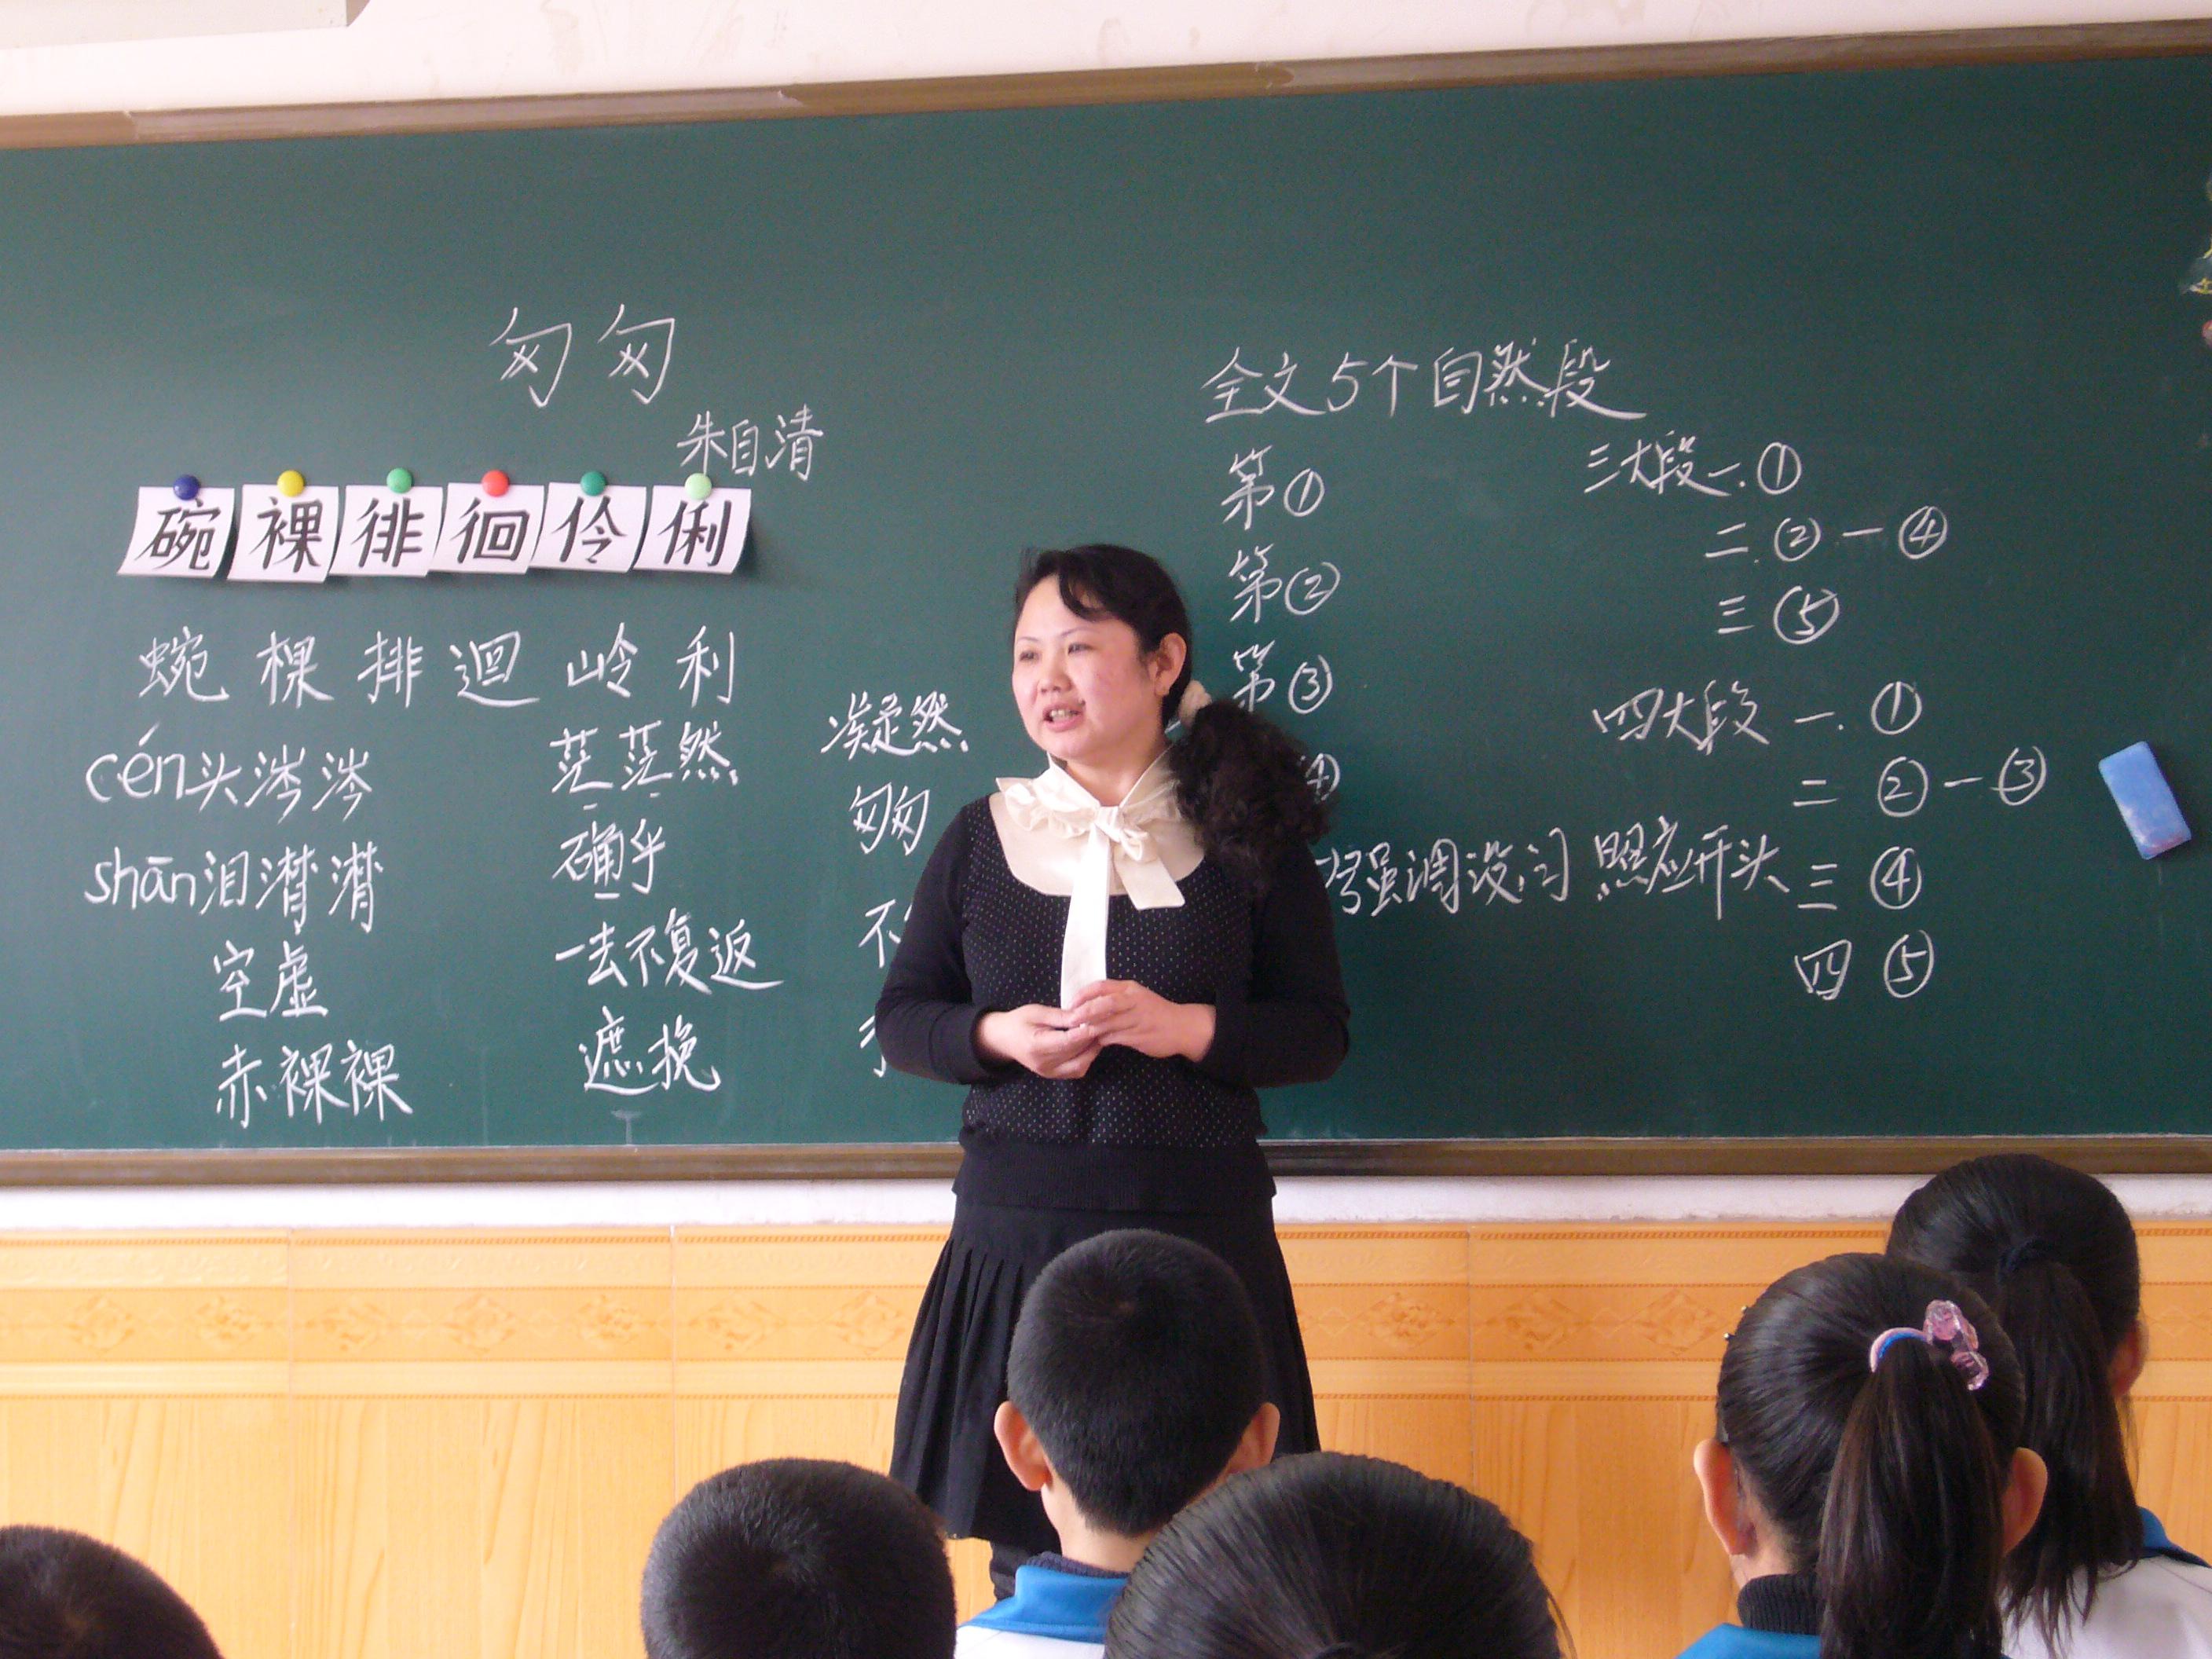 匆匆
朱自清
碗 裸 徘 徊 伶 俐
蜿 棵 排 迴 岭 利
cén头涔涔
shān泪潸潸
空虚
赤裸裸
茫茫然
确乎
一去不复返
遮挽
凝然
匆匆
全文5个自然段
第①
第②
第③
④
增强调设问 照应开头
三大段一.①
二.②一④
三⑤
四大段 一.①
二 ②一③
三 ④
四 ⑤